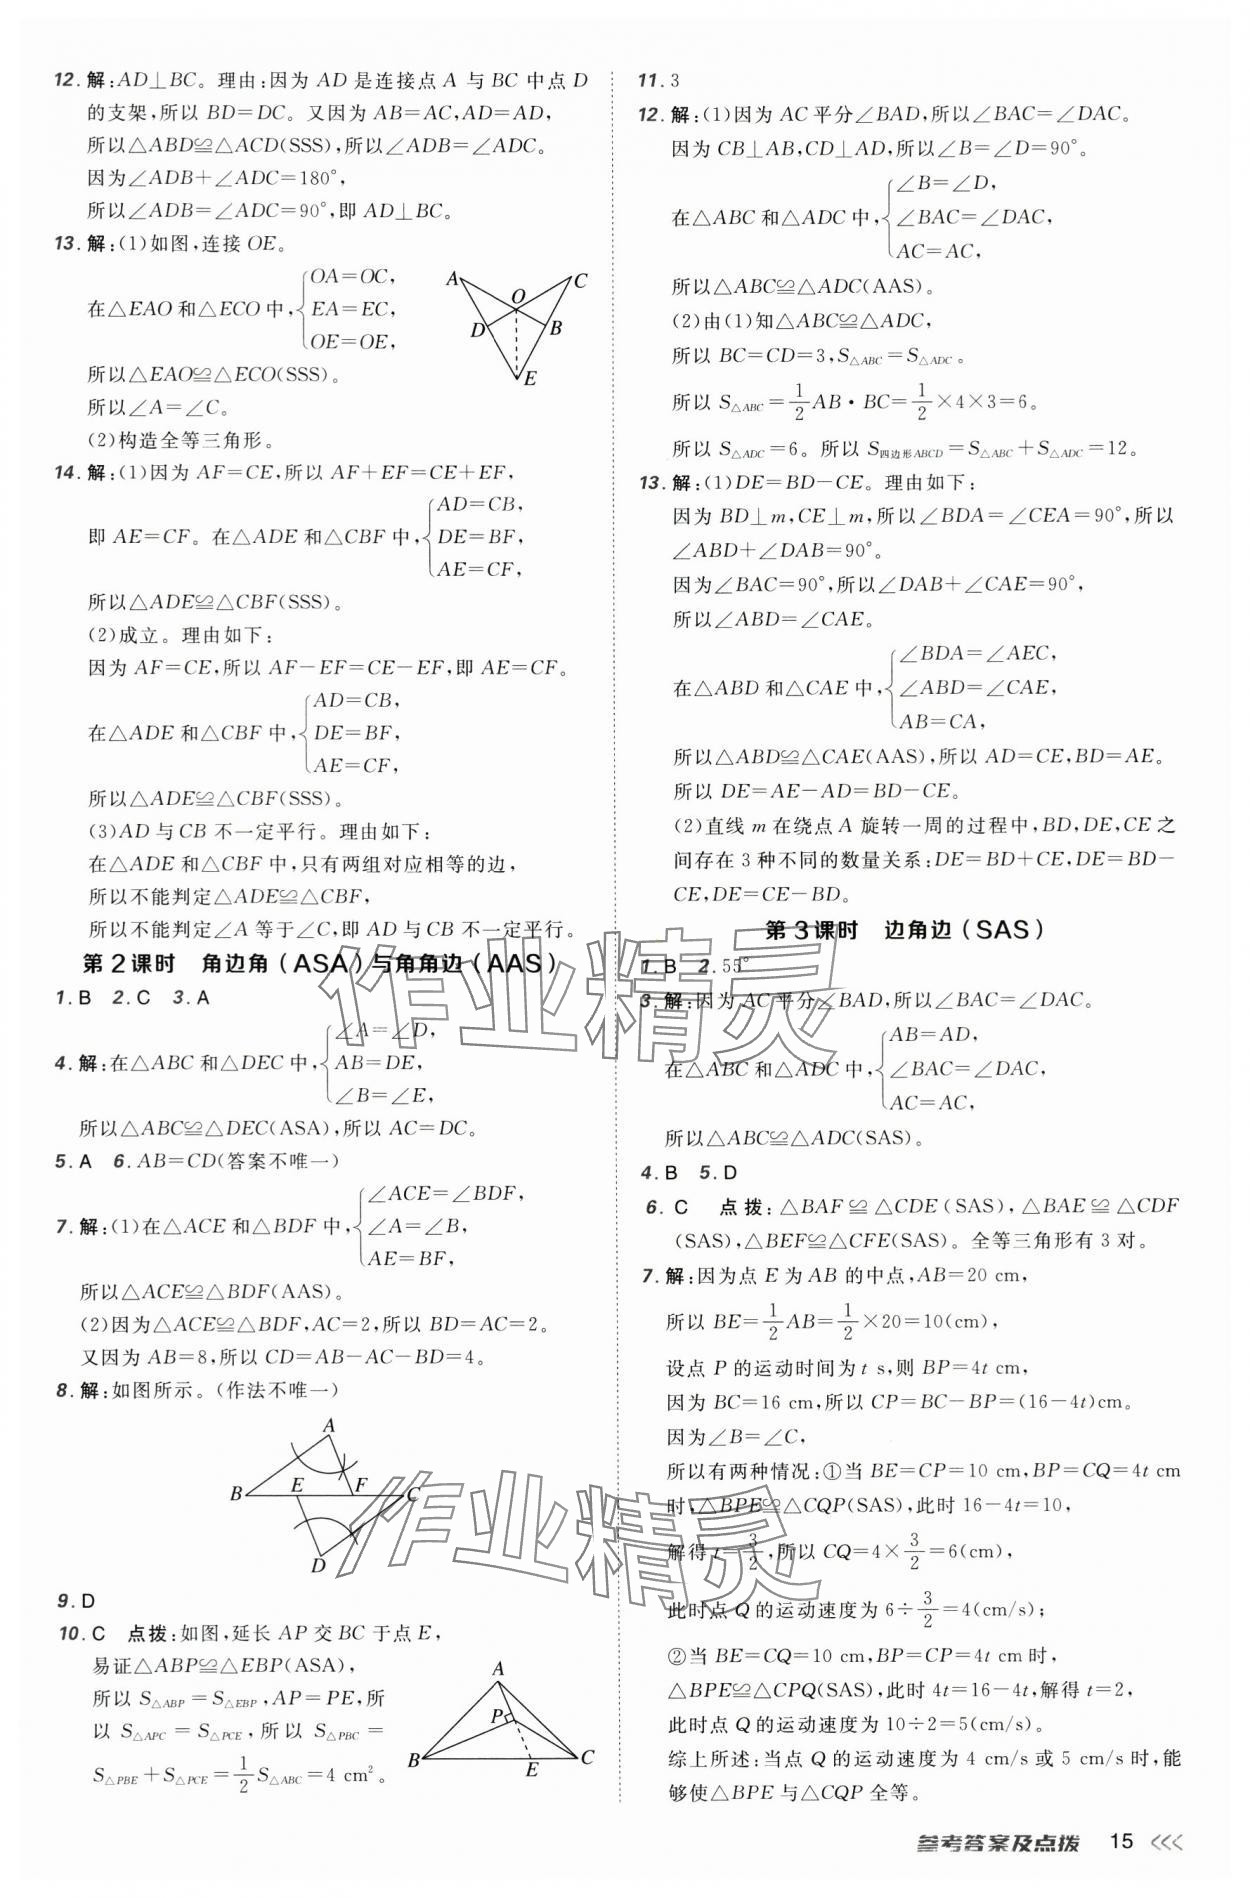 12. 解:AD⊥BC。理由:因为 AD 是连接点 A 与 BC 中点 D
的支架,所以 BD=DC。又因为 AB=AC,AD=AD,
所以△ABD≌△ACD(SSS),所以∠ADB=∠ADC。
因为∠ADB+∠ADC=180°,
所以∠ADB=∠ADC=90°,即 AD⊥BC。
13. 解:(1)如图,连接 OE。
在△EAO 和△ECO 中,{OA=OC,
EA=EC,
OE=OE,
A
C
O
D
B
E
所以△EAO≌△ECO(SSS)。
所以∠A=∠C。
(2)构造全等三角形。
14. 解:(1)因为 AF=CE,所以 AF+EF=CE+EF,
即 AE=CF。在△ADE 和△CBF 中,{AD=CB,
DE=BF,
AE=CF,
所以△ADE≌△CBF(SSS)。
(2)成立。理由如下:
因为 AF=CE,所以 AF-EF=CE-EF,即 AE=CF。
在△ADE 和△CBF 中,{AD=CB,
DE=BF,
AE=CF,
所以△ADE≌△CBF(SSS)。
(3)AD 与 CB 不一定平行。理由如下:
在△ADE 和△CBF 中,只有两组对应相等的边,
所以不能判定△ADE≌△CBF,
所以不能判定∠A 等于∠C,即 AD 与 CB 不一定平行。
第 2 课时 角边角(ASA)与角角边(AAS)
1. B 2. C 3. A
4. 解:在△ABC 和△DEC 中,{∠A=∠D,
AB=DE,
∠B=∠E,
所以△ABC≌△DEC(ASA),所以 AC=DC。
5. A 6. AB=CD(答案不唯一)
7. 解:(1)在△ACE 和△BDF 中,{∠ACE=∠BDF,
∠A=∠B,
AE=BF,
所以△ACE≌△BDF(AAS)。
(2)因为△ACE≌△BDF,AC=2,所以 BD=AC=2。
又因为 AB=8,所以 CD=AB-AC-BD=4。
8. 解:如图所示。(作法不唯一)
A
B
E
F
C
D
9. D
10. C 点拨:如图,延长 AP 交 BC 于点 E,
易证△ABP≌△EBP(ASA),
所以 S△ABP=S△EBP,AP=PE,所
以 S△APC=S△PCE,所以 S△PBC=
S△PBE+S△PCE=1/2 S△ABC=4 cm²。
A
P
B
E
C
11. 3
12. 解:(1)因为 AC 平分∠BAD,所以∠BAC=∠DAC。
因为 CB⊥AB,CD⊥AD,所以∠B=∠D=90°。
在△ABC 和△ADC 中,{∠B=∠D,
∠BAC=∠DAC,
AC=AC,
所以△ABC≌△ADC(AAS)。
(2)由(1)知△ABC≌△ADC,
所以 BC=CD=3,S△ABC=S△ADC。
所以 S△ABC=1/2 AB·BC=1/2×4×3=6。
所以 S△ADC=6。所以 S四边形ABCD=S△ABC+S△ADC=12。
13. 解:(1)DE=BD-CE。理由如下:
因为 BD⊥m,CE⊥m,所以∠BDA=∠CEA=90°,所以
∠ABD+∠DAB=90°。
因为∠BAC=90°,所以∠DAB+∠CAE=90°,
所以∠ABD=∠CAE。
在△ABD 和△CAE 中,{∠BDA=∠AEC,
∠ABD=∠CAE,
AB=CA,
所以△ABD≌△CAE(AAS),所以 AD=CE,BD=AE。
所以 DE=AE-AD=BD-CE。
(2)直线 m 在绕点 A 旋转一周的过程中,BD,DE,CE 之
间存在 3 种不同的数量关系:DE=BD+CE,DE=BD-
CE,DE=CE-BD。
第 3 课时 边角边(SAS)
1. B 2. 55°
3. 解:因为 AC 平分∠BAD,所以∠BAC=∠DAC。
在△ABC 和△ADC 中,{AB=AD,
∠BAC=∠DAC,
AC=AC,
所以△ABC≌△ADC(SAS)。
4. B 5. D
6. C 点拨:△BAF≌△CDE(SAS),△BAE≌△CDF
(SAS),△BEF≌△CFE(SAS)。全等三角形有 3 对。
7. 解:因为点 E 为 AB 的中点,AB=20 cm,
所以 BE=1/2 AB=1/2×20=10(cm),
设点 P 的运动时间为 t s,则 BP=4t cm,
因为 BC=16 cm,所以 CP=BC-BP=(16-4t)cm。
因为∠B=∠C,
所以有两种情况:①当 BE=CP=10 cm,BP=CQ=4t cm
时,△BPE≌△CQP(SAS),此时 16-4t=10,
解得 t=3/2,所以 CQ=4×3/2=6(cm),
此时点 Q 的运动速度为 6÷3/2=4(cm/s);
②当 BE=CQ=10 cm,BP=CP=4t cm 时,
△BPE≌△CPQ(SAS),此时 4t=16-4t,解得 t=2,
此时点 Q 的运动速度为 10÷2=5(cm/s)。
综上所述:当点 Q 的运动速度为 4 cm/s 或 5 cm/s 时,能
够使△BPE 与△CQP 全等。
作业精灵
作业精灵
参考答案及点拨 15